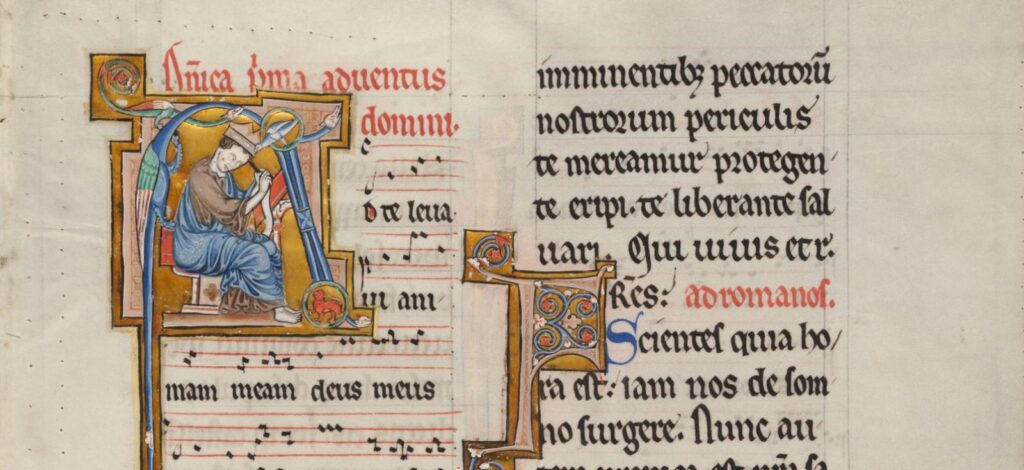 Dñica p̃ma aduentus
domini.
AD te leua
ui ani
mam meam deus meus
imminentibꝫ peccatorũ
nostrorum periculis
te mereamur protegen
te eripi. te liberante sal
uari. Qui uiuis et r.
FRẽs: ad romanos.
Scientes quia ho/
ra est: iam nos de som
no surgere. Nunc au